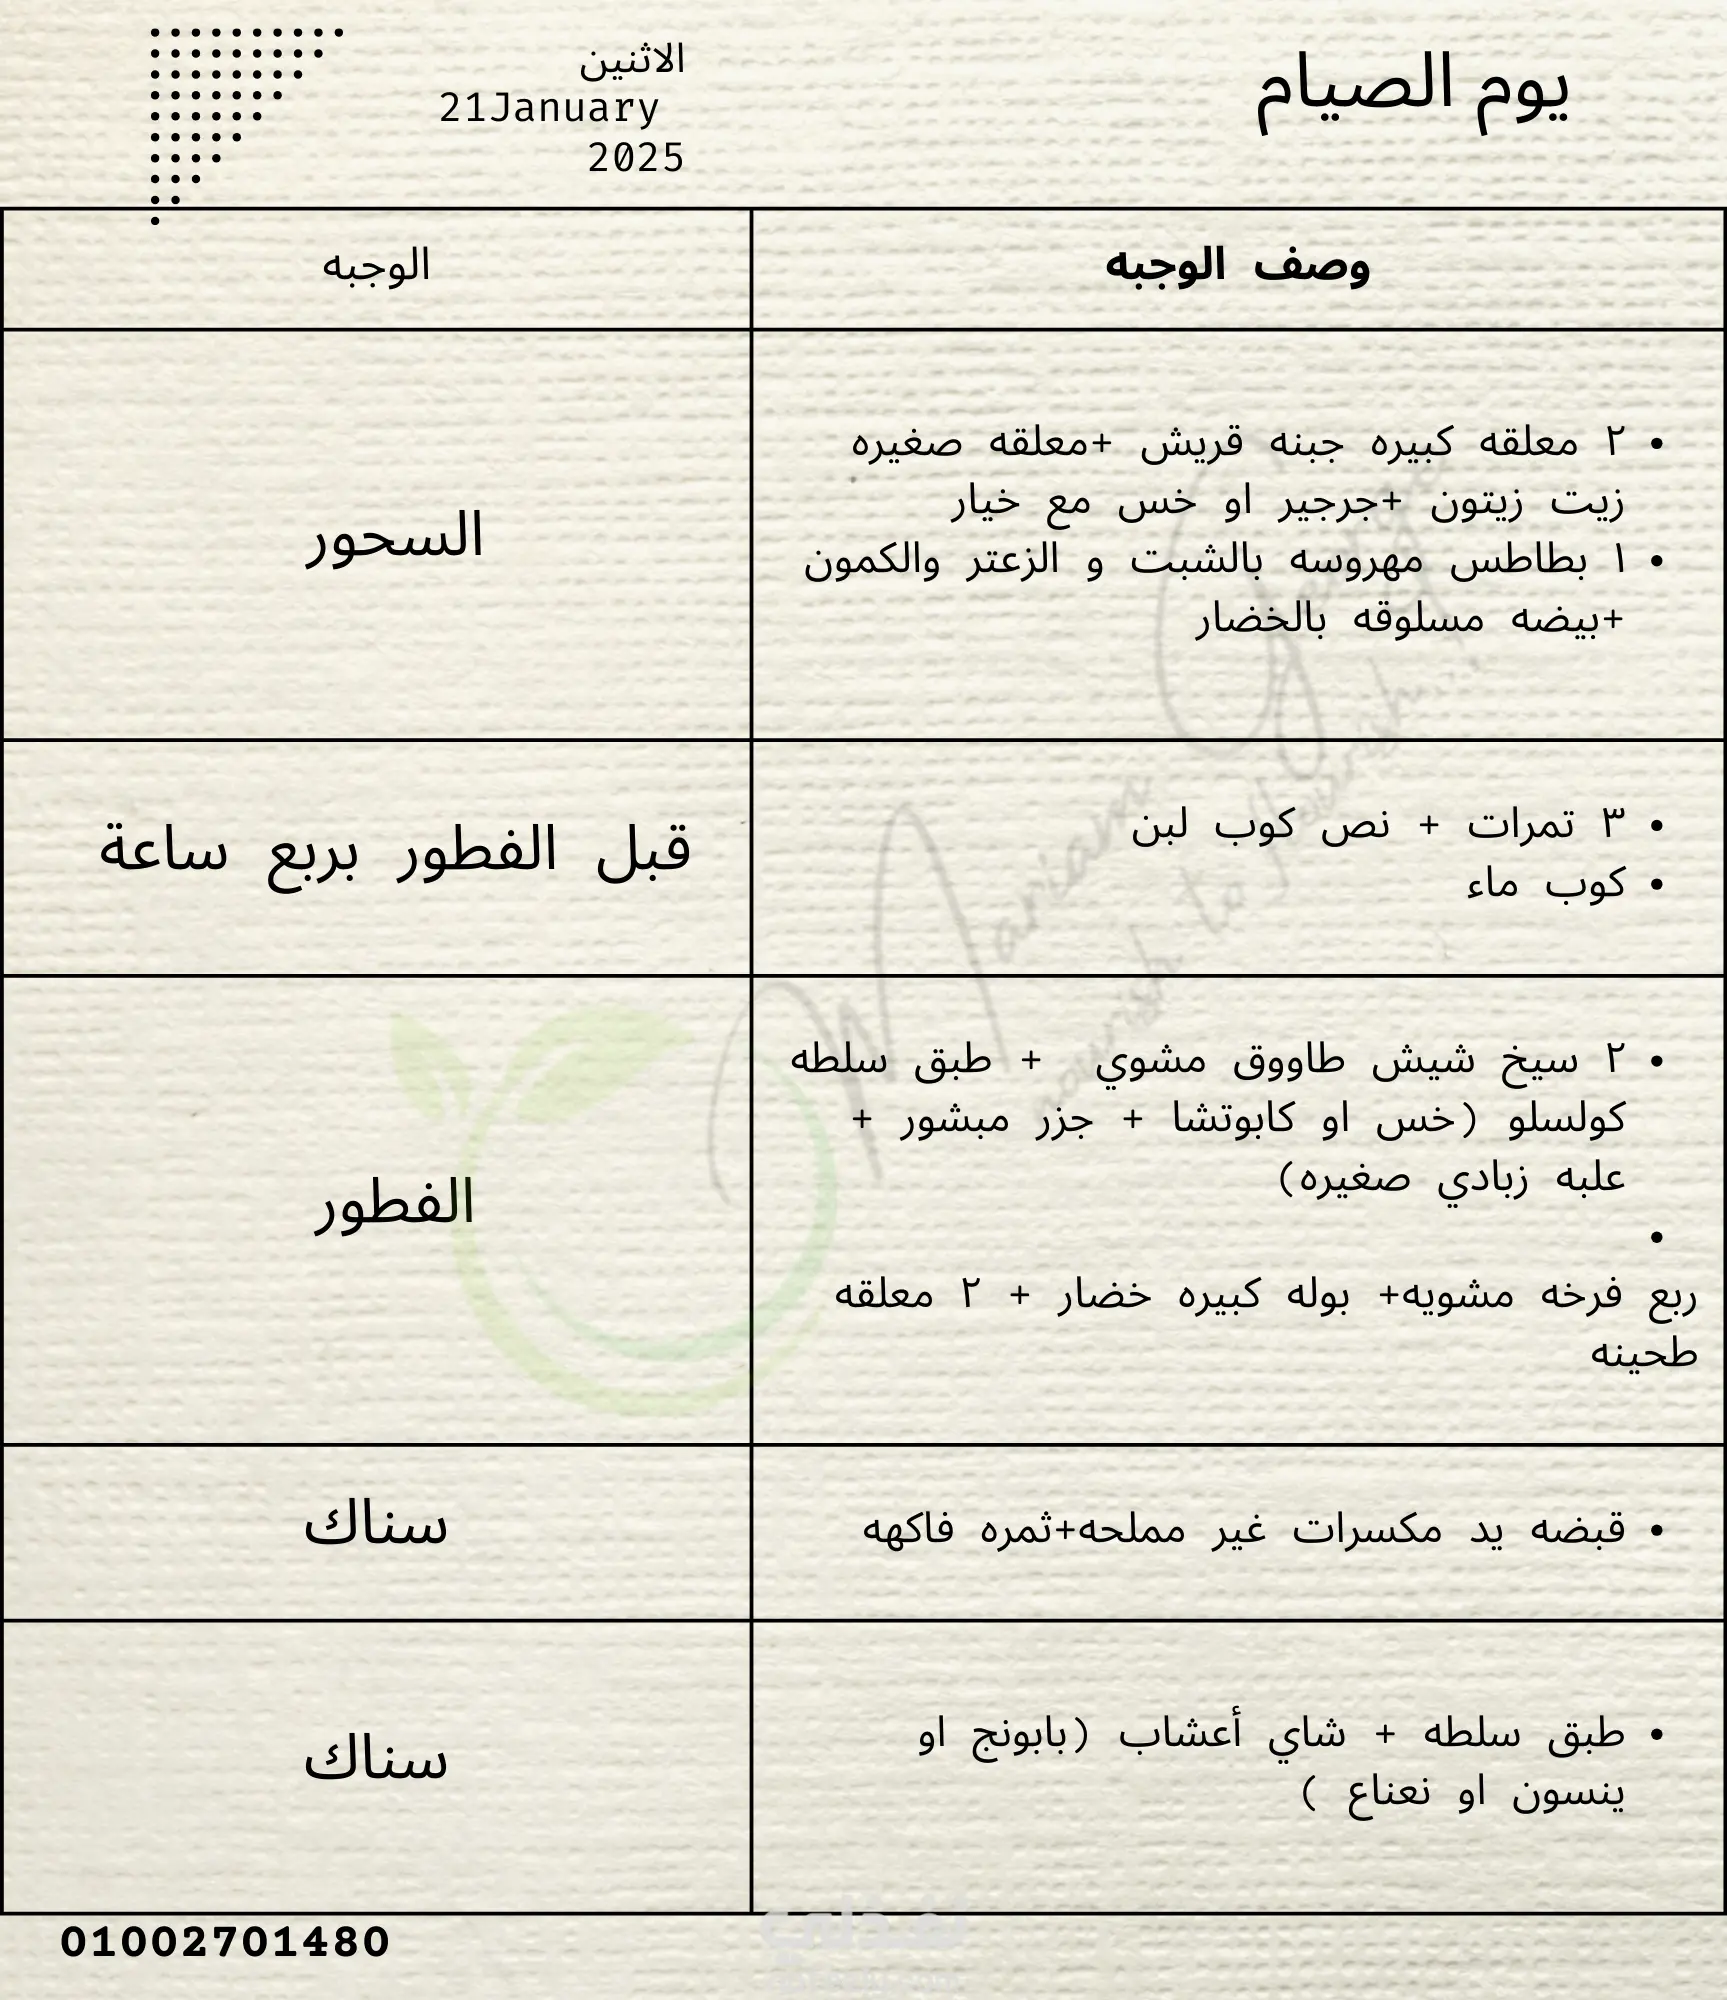 يوم الصيام
الاثنين
21January
2025
وصف الوجبه
الوجبه
٢ معلقه كبيره جبنه قريش +معلقه صغيره
زيت زيتون +جرجير او خس مع خيار
١ بطاطس مهروسه بالشبت و الزعتر والكمون
+بيضه مسلوقه بالخضار
السحور
٣ تمرات + نص كوب لبن
كوب ماء
قبل الفطور بربع ساعة
٢ سيخ شيش طاووق مشوي + طبق سلطه
كولسلو (خس او كابوتشا + جزر مبشور +
علبه زبادي صغيره)
ربع فرخه مشويه+ بوله كبيره خضار + ٢ معلقه
طحينه
الفطور
قبضه يد مكسرات غير مملحه+ثمره فاكهه
سناك
طبق سلطه + شاي أعشاب (بابونج او
ينسون او نعناع )
سناك
Mariam
nourish to
01002701480